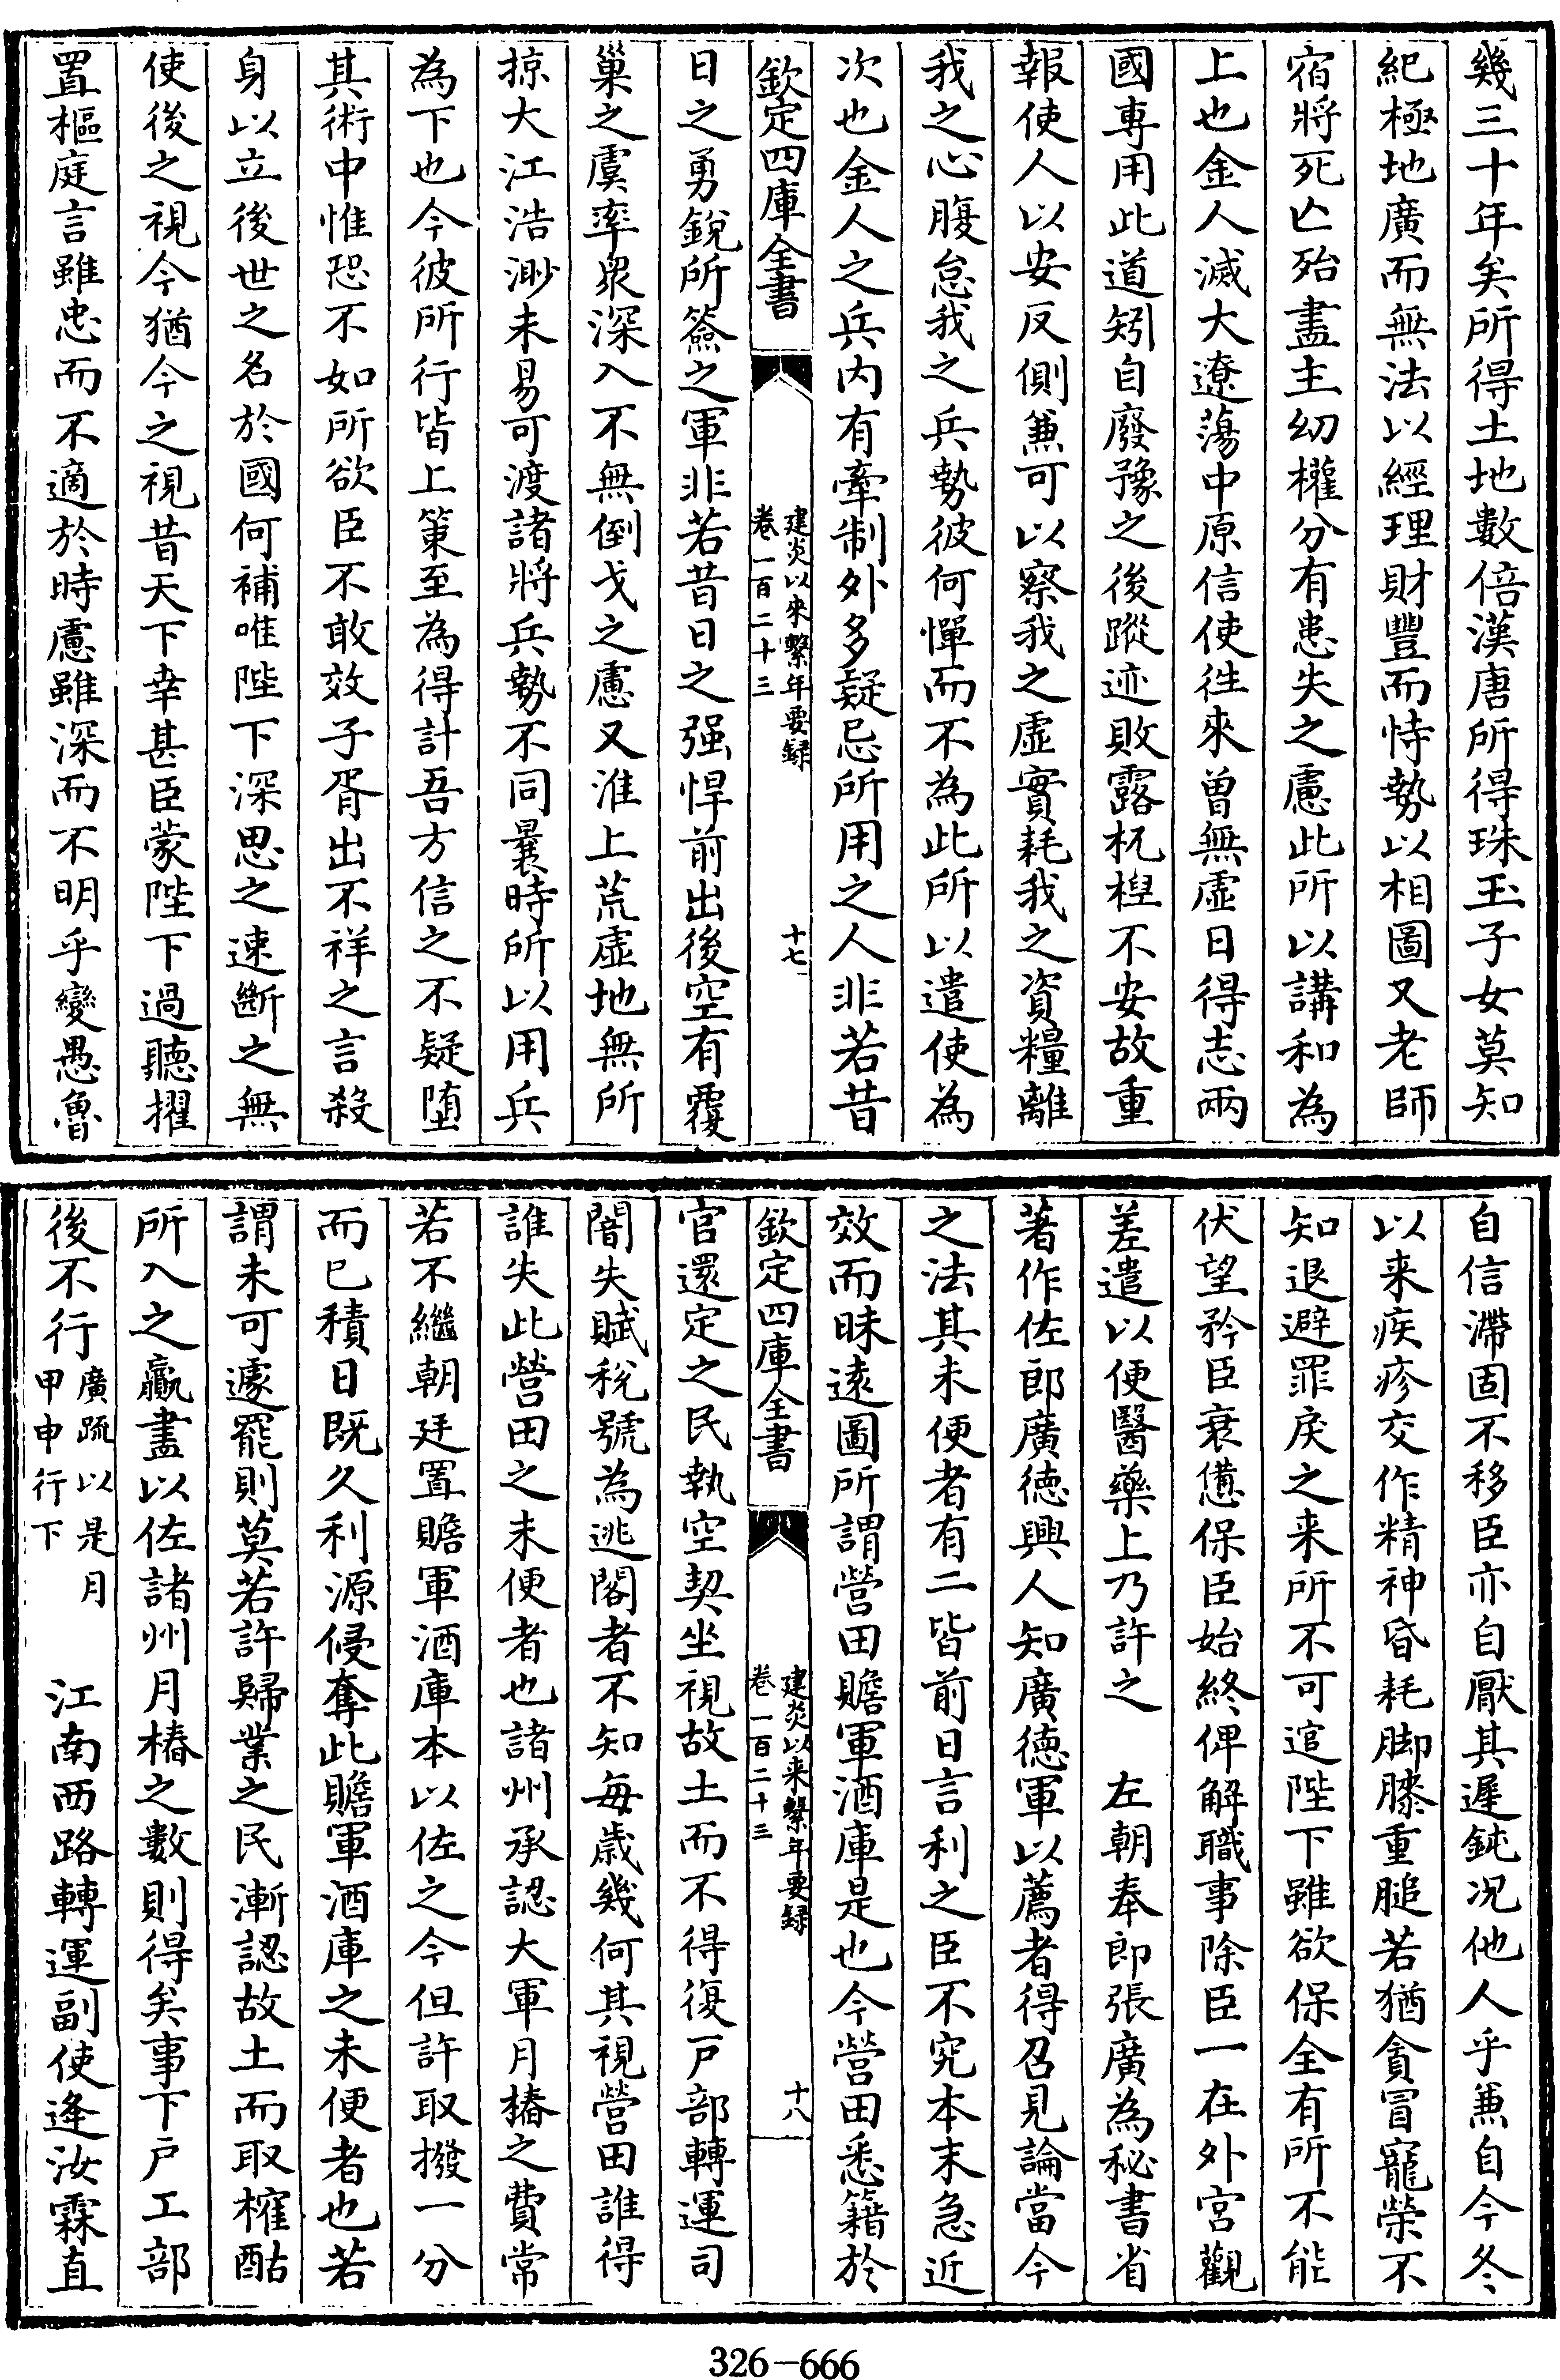 幾三十年矣所得土地數倍漢唐所得珠玉子女莫知
紀極地廣而無法以經理財豐而恃勢以相圖又老師
宿將死亡殆盡主幼權分有患失之慮此所以講和為
上也金人滅大遼蕩中原信使徃來曾無虛日得志兩
國專用此道矧自廢豫之後蹤迹敗露杌楻不安故重
報使人以安反側兼可以察我之虛實耗我之資糧離
我之心腹怠我之兵勢彼何憚而不為此所以遣使為
次也金人之兵内有牽制外多疑忌所用之人非若昔
欽定四庫全書
建炎以來繫年要録
卷一百二十三
十七
日之勇銳所簽之軍非若昔日之强悍前出後空有覆
巢之虞率衆深入不無倒戈之慮又淮上荒虛地無所
掠大江浩渺未易可渡諸將兵勢不同曩時所以用兵
為下也今彼所行皆上策至為得計吾方信之不疑墮
其術中惟恐不如所欲臣不敢效子胥出不祥之言殺
身以立後世之名於國何補唯陛下深思之速斷之無
使後之視今猶今之視昔天下幸甚臣蒙陛下過聽擢
置樞庭言雖忠而不適於時慮雖深而不明乎變愚魯
自信滯固不移臣亦自厭其遲鈍况他人乎兼自今冬
以来疾疹交作精神昏耗脚膝重膇若猶貪冒寵榮不
知退避罪戾之来所不可逭陛下雖欲保全有所不能
伏望矜臣衰憊保臣始終俾解職事除臣一在外宫觀
差遣以便醫藥上乃許之　左朝奉郎張廣為秘書省
著作佐郎廣德興人知廣德軍以薦者得召見論當今
之法其未便者有二皆前日言利之臣不究本末急近
效而昧遠圖所謂營田贍軍酒庫是也今營田悉籍於
欽定四庫全書
建炎以来繫年要録
卷一百二十三
十八
官還定之民執空契坐視故土而不得復戸部轉運司
闇失賦稅號為逃閣者不知每歳幾何其視營田誰得
誰失此營田之未便者也諸州承認大軍月樁之費常
若不繼朝廷置贍軍酒庫本以佐之今但許取撥一分
而已積日既久利源侵奪此贍軍酒庫之未便者也若
謂未可遽罷則莫若許歸業之民漸認故土而取榷酤
所入之贏盡以佐諸州月樁之數則得矣事下戸工部
後不行廣疏以是月
甲申行下　江南西路轉運副使逄汝霖直
326-666